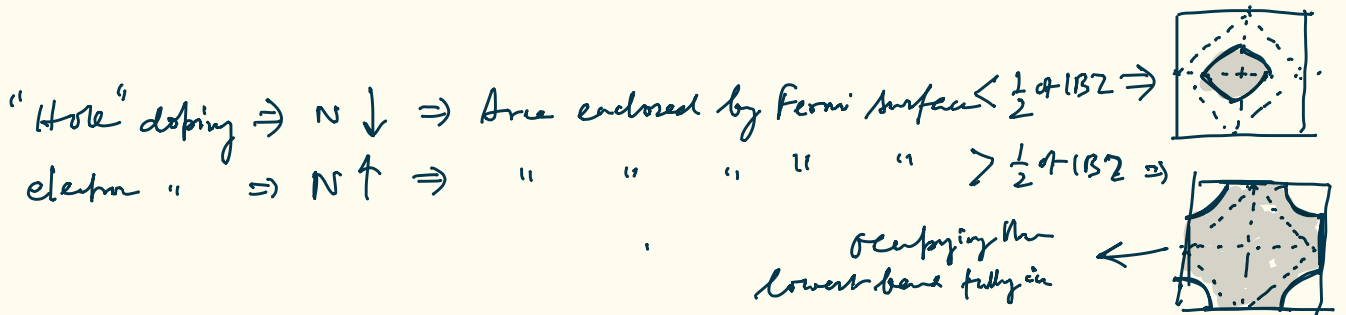 "Hole" doping ⇒ N ↓ ⇒ Area enclosed by Fermi surface < 1/2 of 1BZ ⇒
electron " ⇒ N ↑ ⇒ " " " " " > 1/2 of 1BZ ⇒
occupying the ←
lowest band fully in